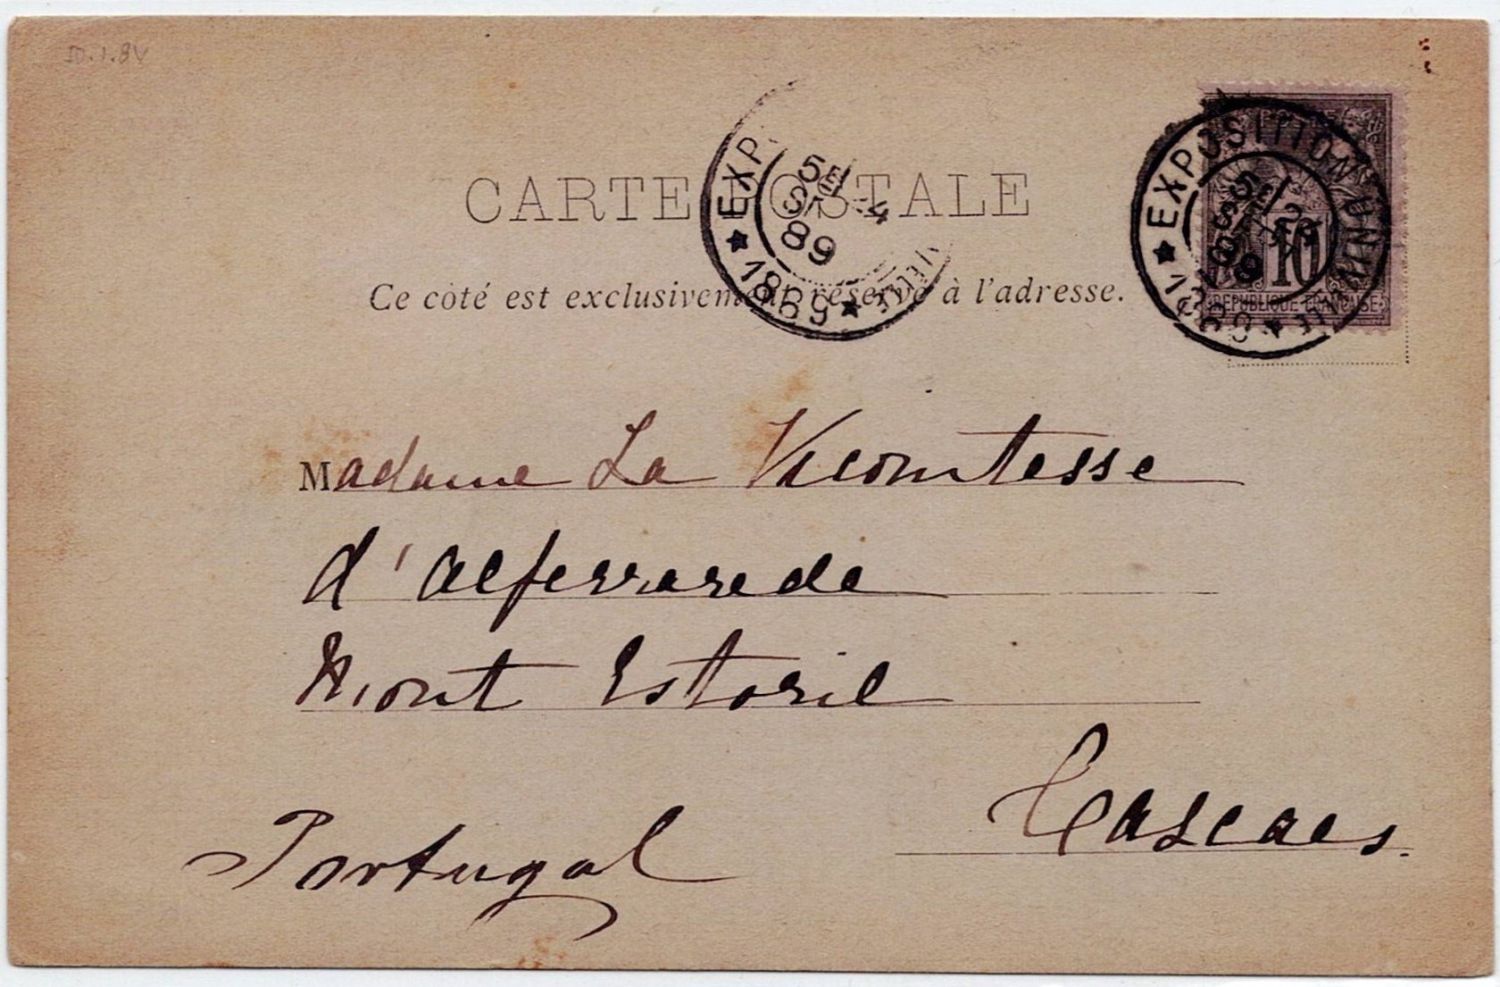 CARTE POSTALE
Ce côté est exclusivement réservé à l'adresse.
EXPOSITION UNIVERSELLE
★ 1889 ★
5E
89
EXPOSITION UNIVERSELLE
★ 1889 ★
5E
89
10
REPUBLIQUE FRANÇAISE
Madame La Vicomtesse
d'Alferrarede
Mont Estoril
Cascaes.
Portugal